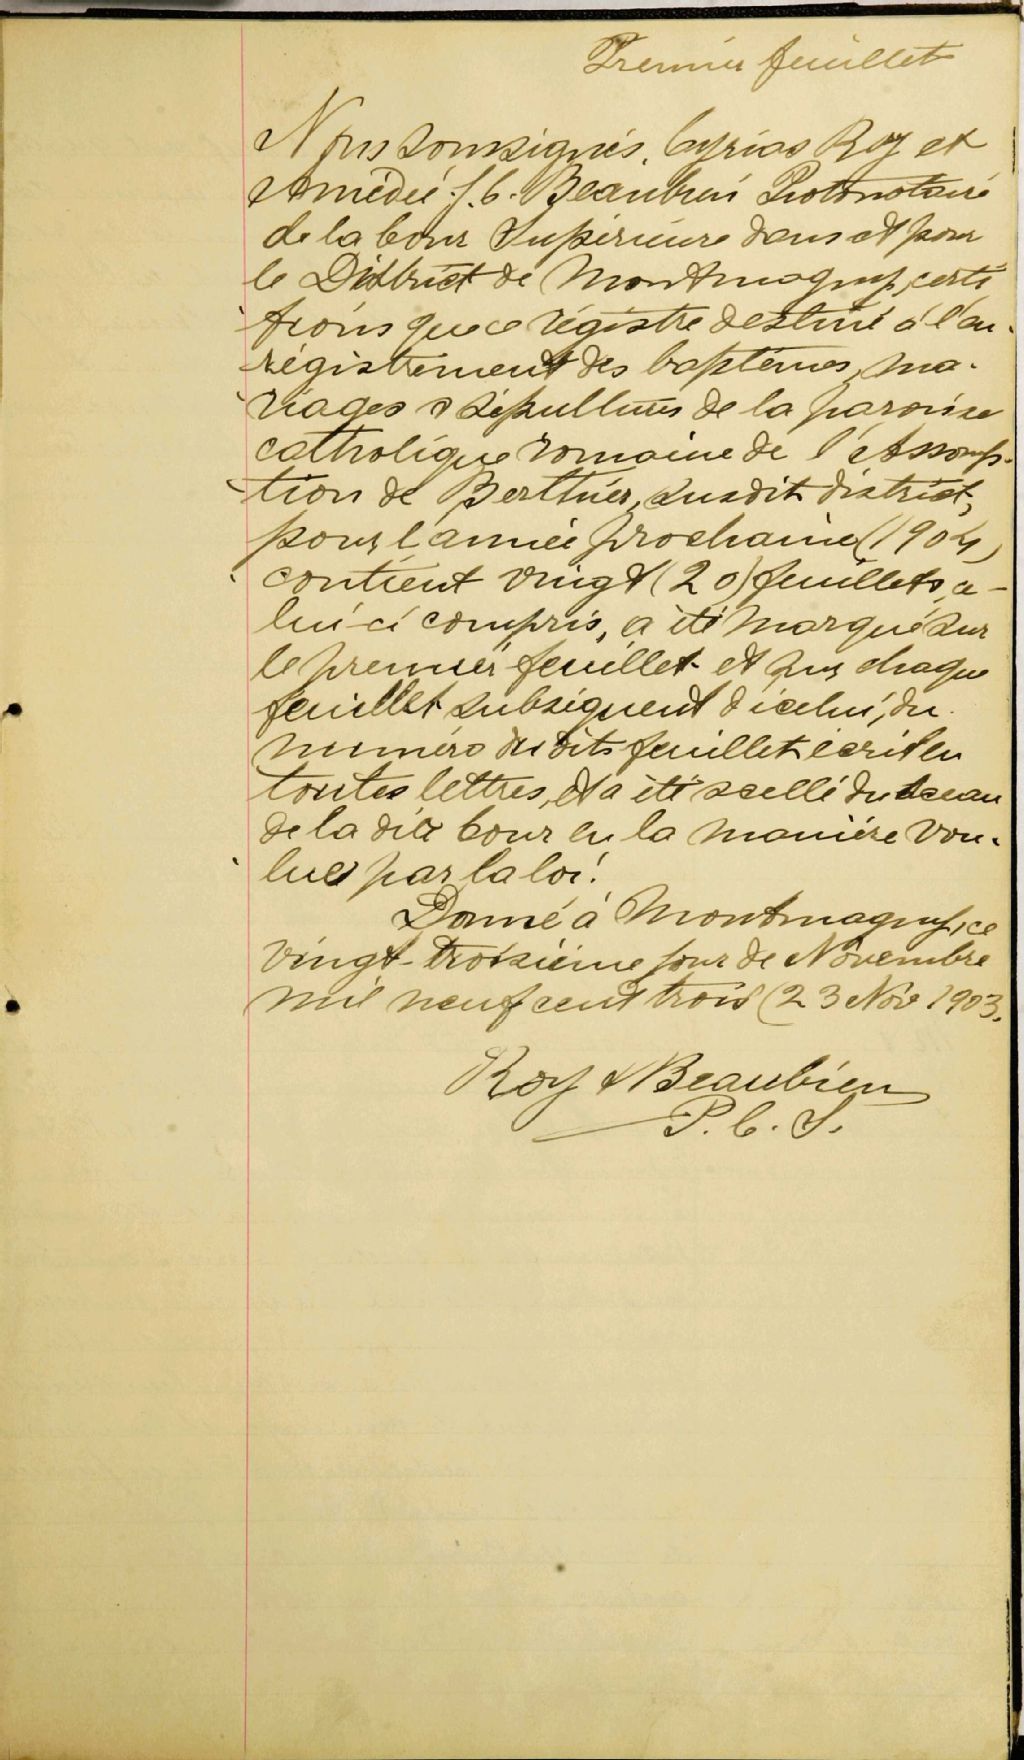 Premier feuillet
Nous soussignés, Cyrias Roy et
Amédée J. C. Beaubien Protonotaire
de la Cour Supérieure dans et pour
le District de Montmagny, certi
fions que ce régistre destiné à l'en-
régistrement des baptêmes, ma-
riages & sépultures de la paroisse
catholique romaine de l'Assomp-
tion de Berthier, susdit district,
pour l'année prochaine (1904)
contient vingt (20) feuillets, ce-
lui-ci compris, a été marqué sur
le premier feuillet et sur chaque
feuillet subséquent d'icelui, du
numéro des dits feuillet écrit en
toutes lettres, et a été scellé du sceau
de la dite Cour en la manière vou-
lue par la loi.
Donné à Montmagny, ce
vingt-troisième jour de Novembre
mil neuf cent trois (23 Nov 1903.
Roy & Beaubien
P. C. S.